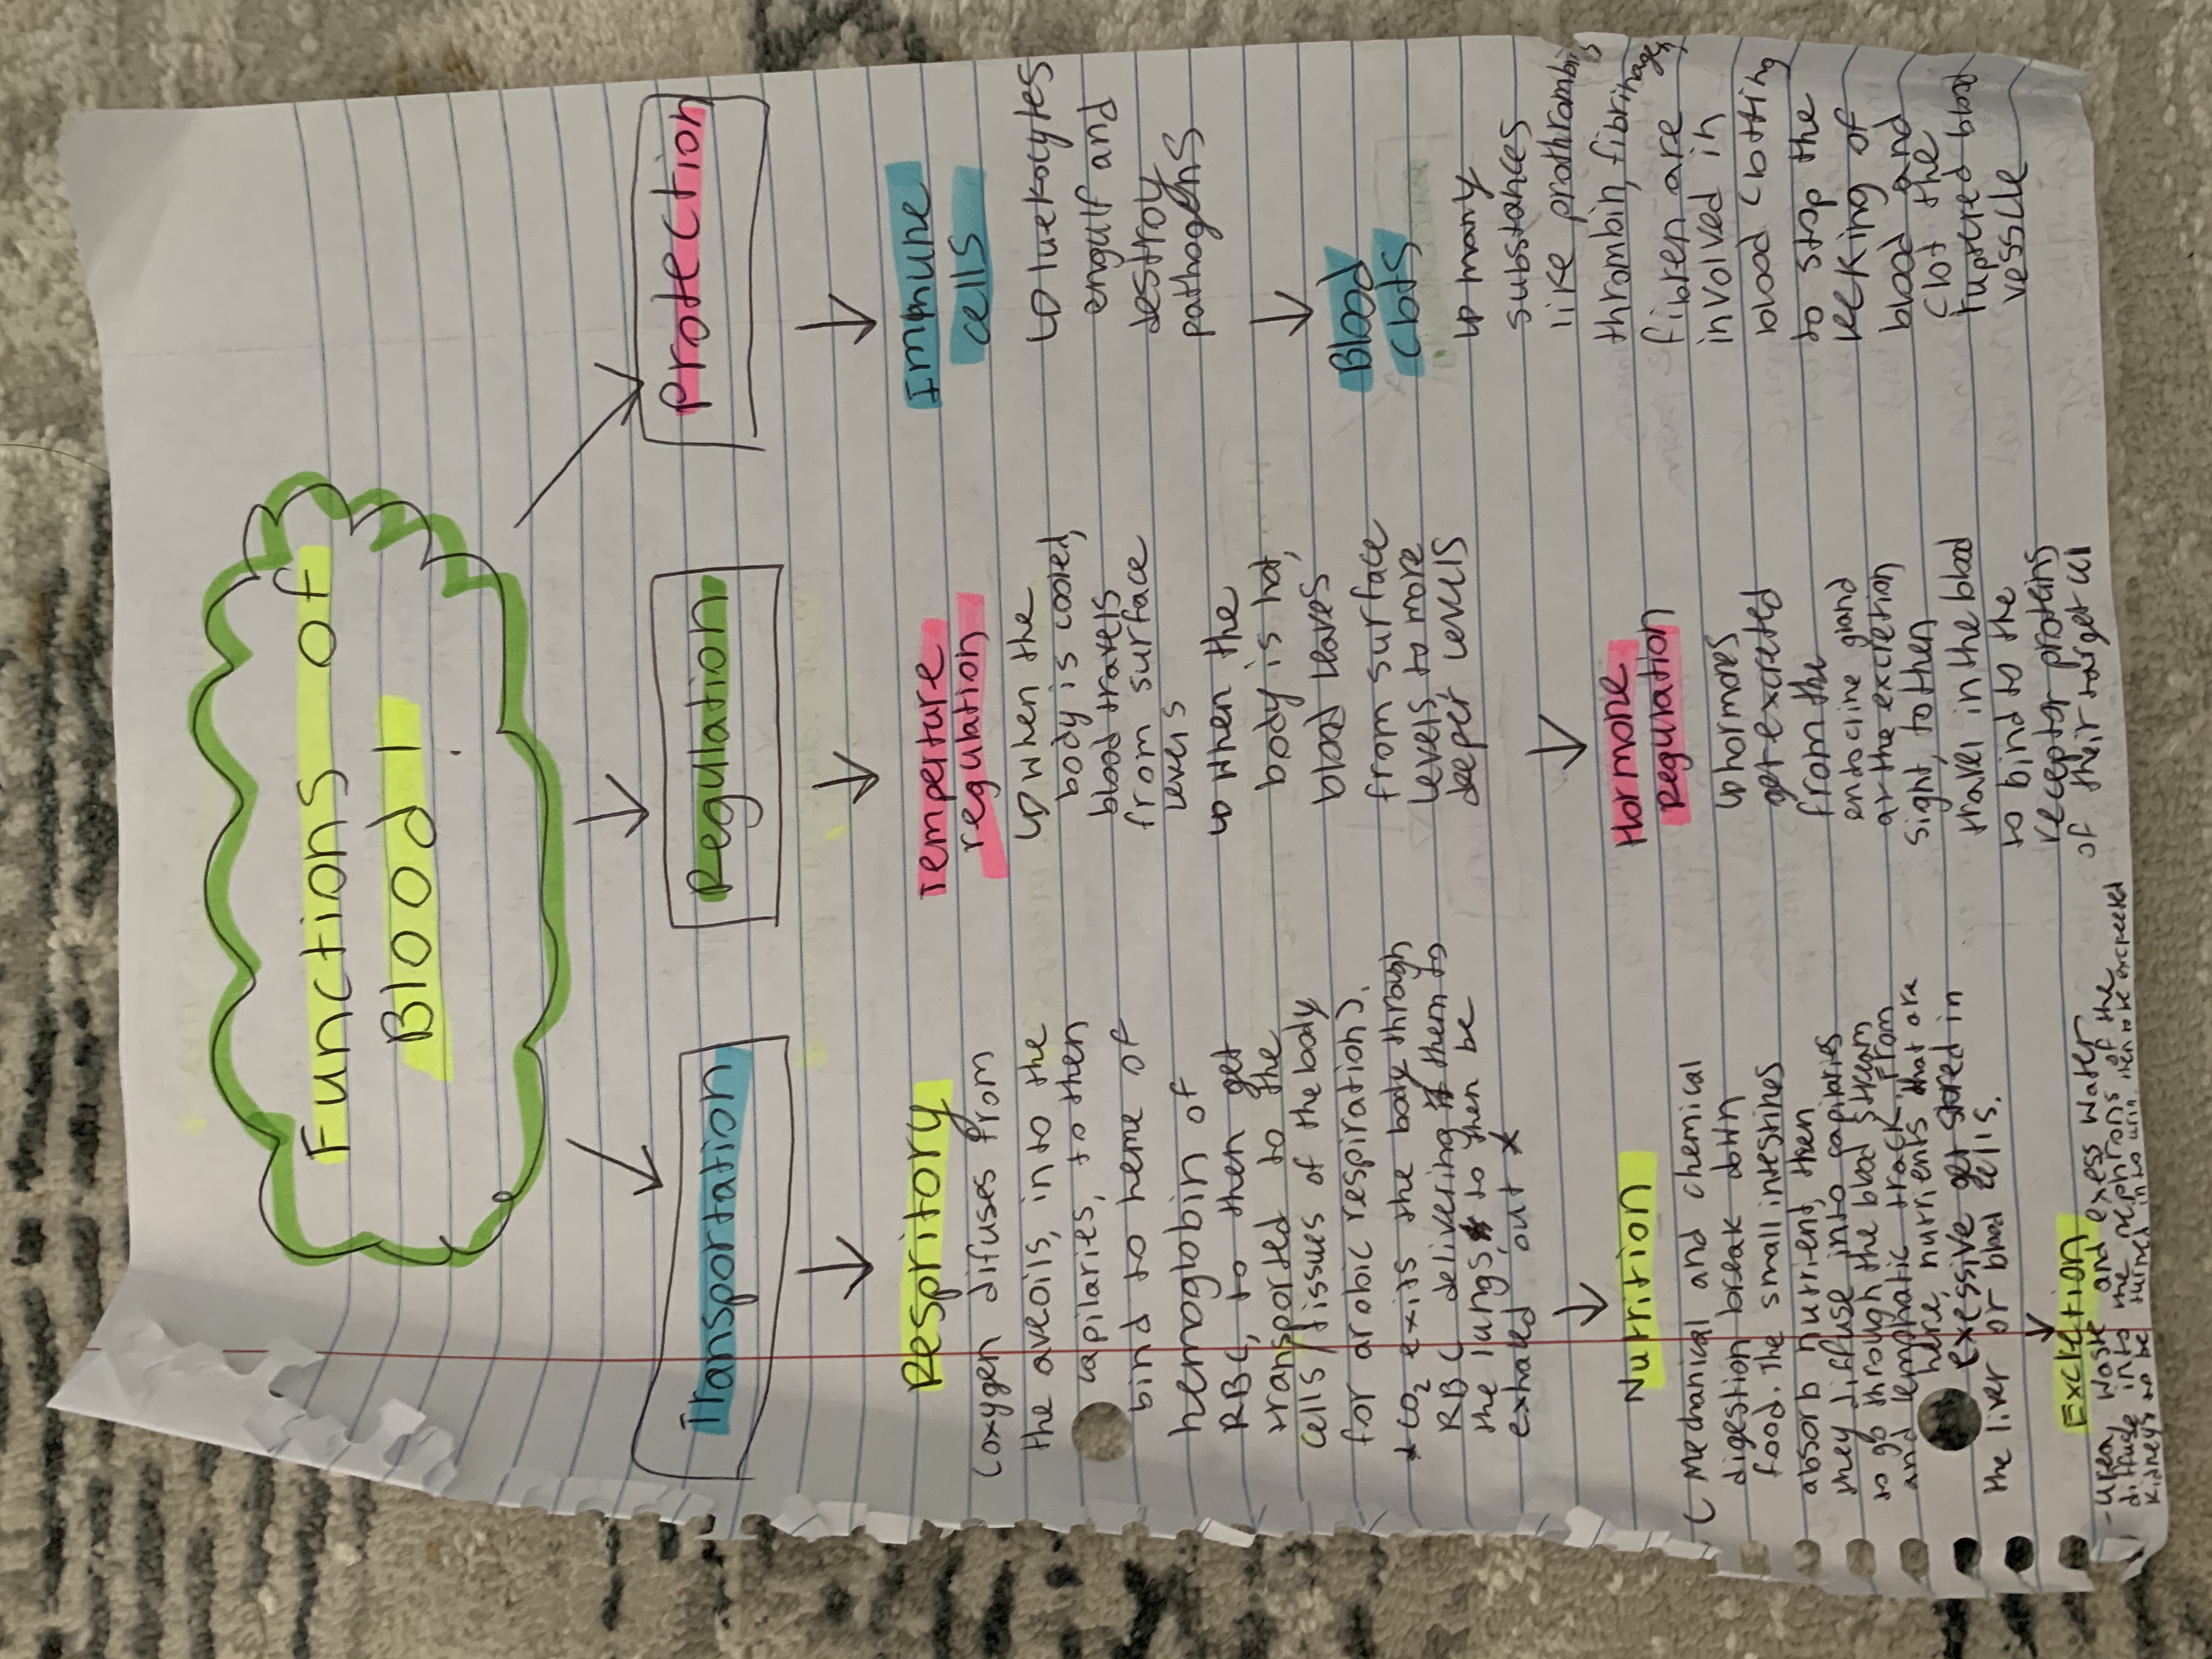 Functions of
Blood!
Transportation
Respritory
(oxygen difuses from
the aveoils, into the
capilaries, to then
bind to heme of
hemoglobin of
RBC, to then get
transported to the
cells/tissues of the body
for arobic respiration).
* CO2 exits the body through
RBC delivering them to
the lungs to then be
exhaled out *
Nutrition
( Mechanical and chemical
digestion break down
food. The small intestines
absorb nutrient, then
they diffuse into capilaries
to go through the blood stream
and lemphatic track. From
here, nutrients that are
exessive get stored in
the liver or blood cells.
Excretion
- urea, waste and exess water
difuse into the nephrons of the
kidneys to be turned into urin, then to be excreeted
Regulation
Temperture
regulation
↳ when the
body is cooled,
blood travels
from surface
levels
↳ when the
body is hot,
blood leaves
from surface
levels, to more
deeper levels
Hormone
Regulation
↳ hormones
get excreted
from the
endocrine gland
at the excretion
sight, to then
travel in the blood
to bind to the
receptor protiens
of their target cell
Protection
Immune
cells
↳ luekocytes
engulf and
destroy
pathogens
Blood
Clots
↳ many
substances
like prothrambin,
thrombin, fibrinagen,
fibren are
involved in
blood clotting
to stop the
leeking of
blood and
clot the
ruptered blood
vessle